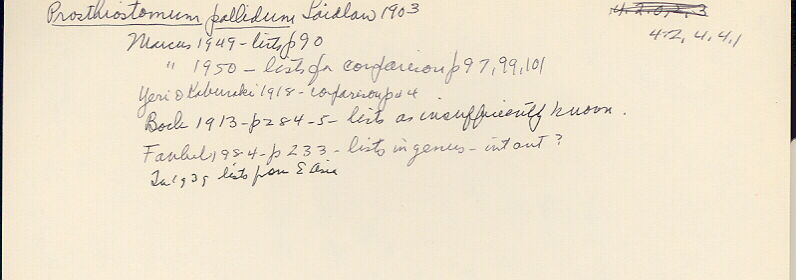 Prosthiostomum pallidum Laidlaw 1903
4.2.0.2.3
4.2.4.4.1
Marcus 1949 - lists p90
" 1950 - lists for comparison p97,99,101
Yeri & Kaburaki 1918 - comparison p44
Bock 1913 - p284-5 - lists as insufficiently known.
Faubel 1984 - p233 - lists in genus - int ant?
Tu 1939 lists from E Asia